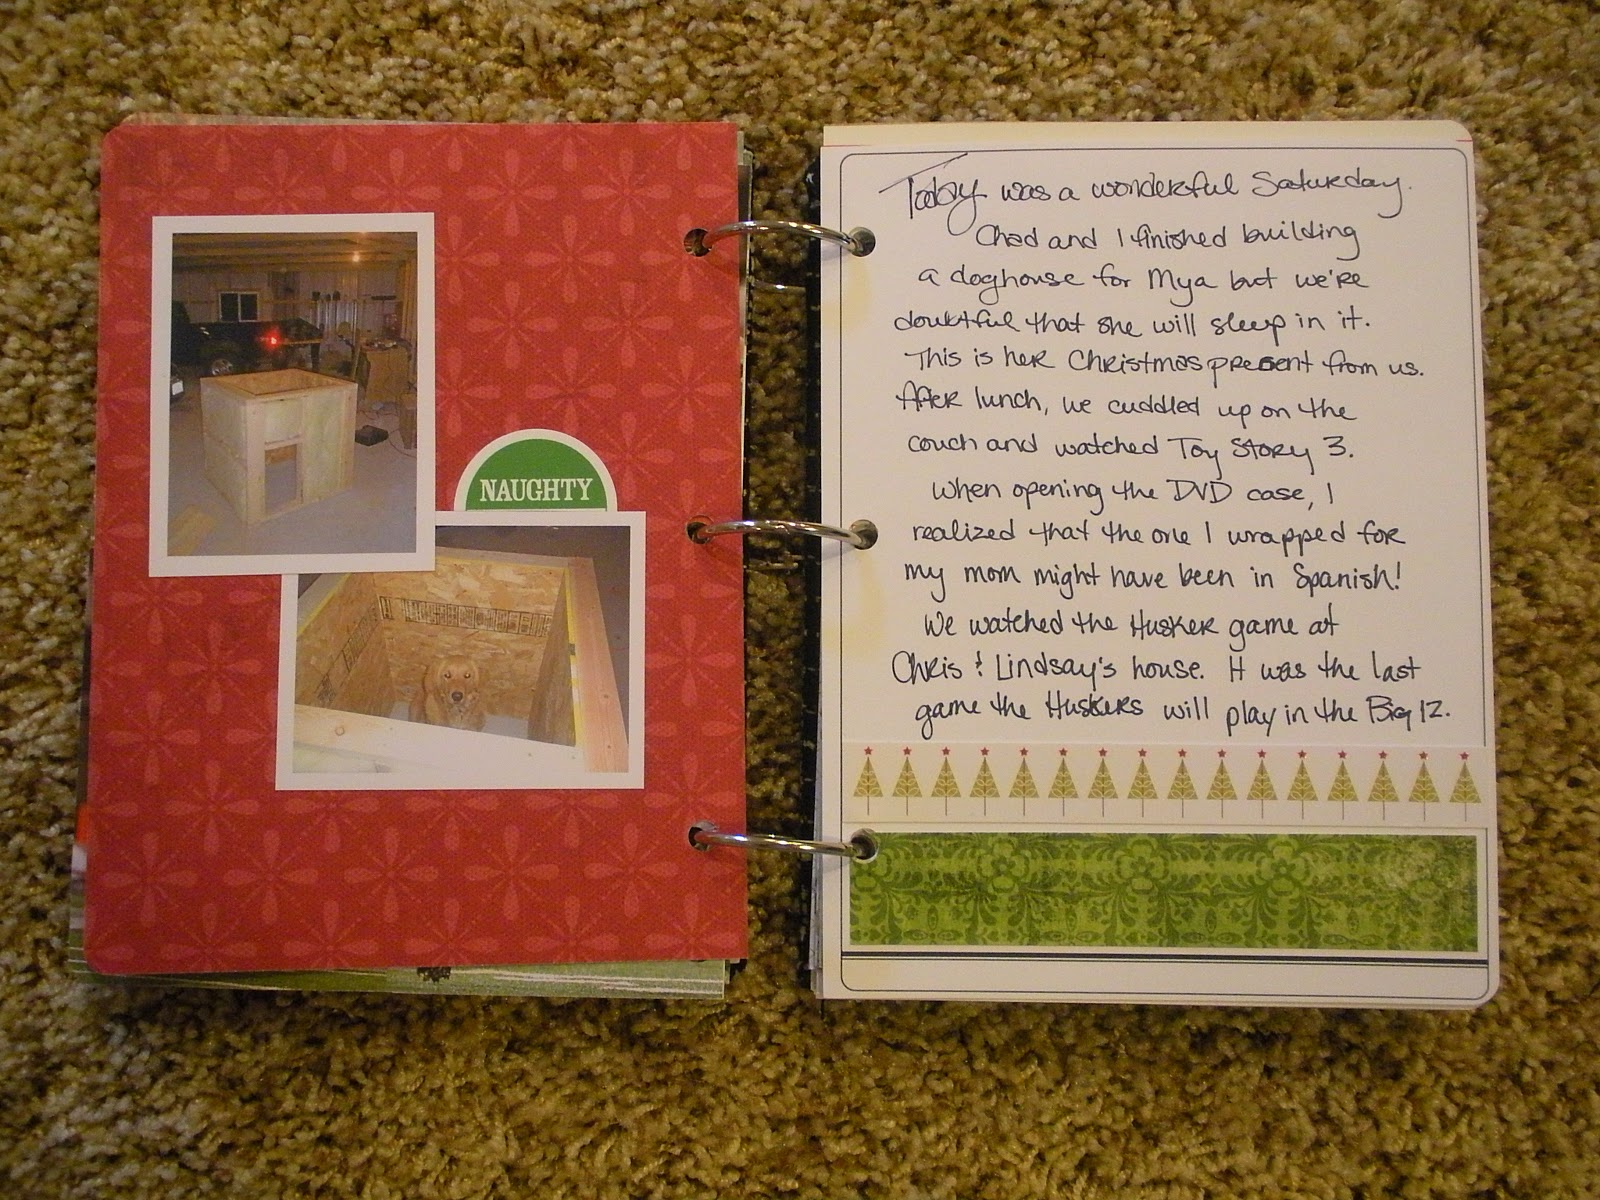 NAUGHTY
Today was a wonderful Saturday.
Chad and I finished building
a doghouse for Mya but we're
doubtful that she will sleep in it.
This is her Christmas present from us.
After lunch, we cuddled up on the
couch and watched Toy Story 3.
When opening the DVD case, I
realized that the one I wrapped for
my mom might have been in Spanish!
We watched the Husker game at
Chris & Lindsay's house. It was the last
game the Huskers will play in the Big 12.